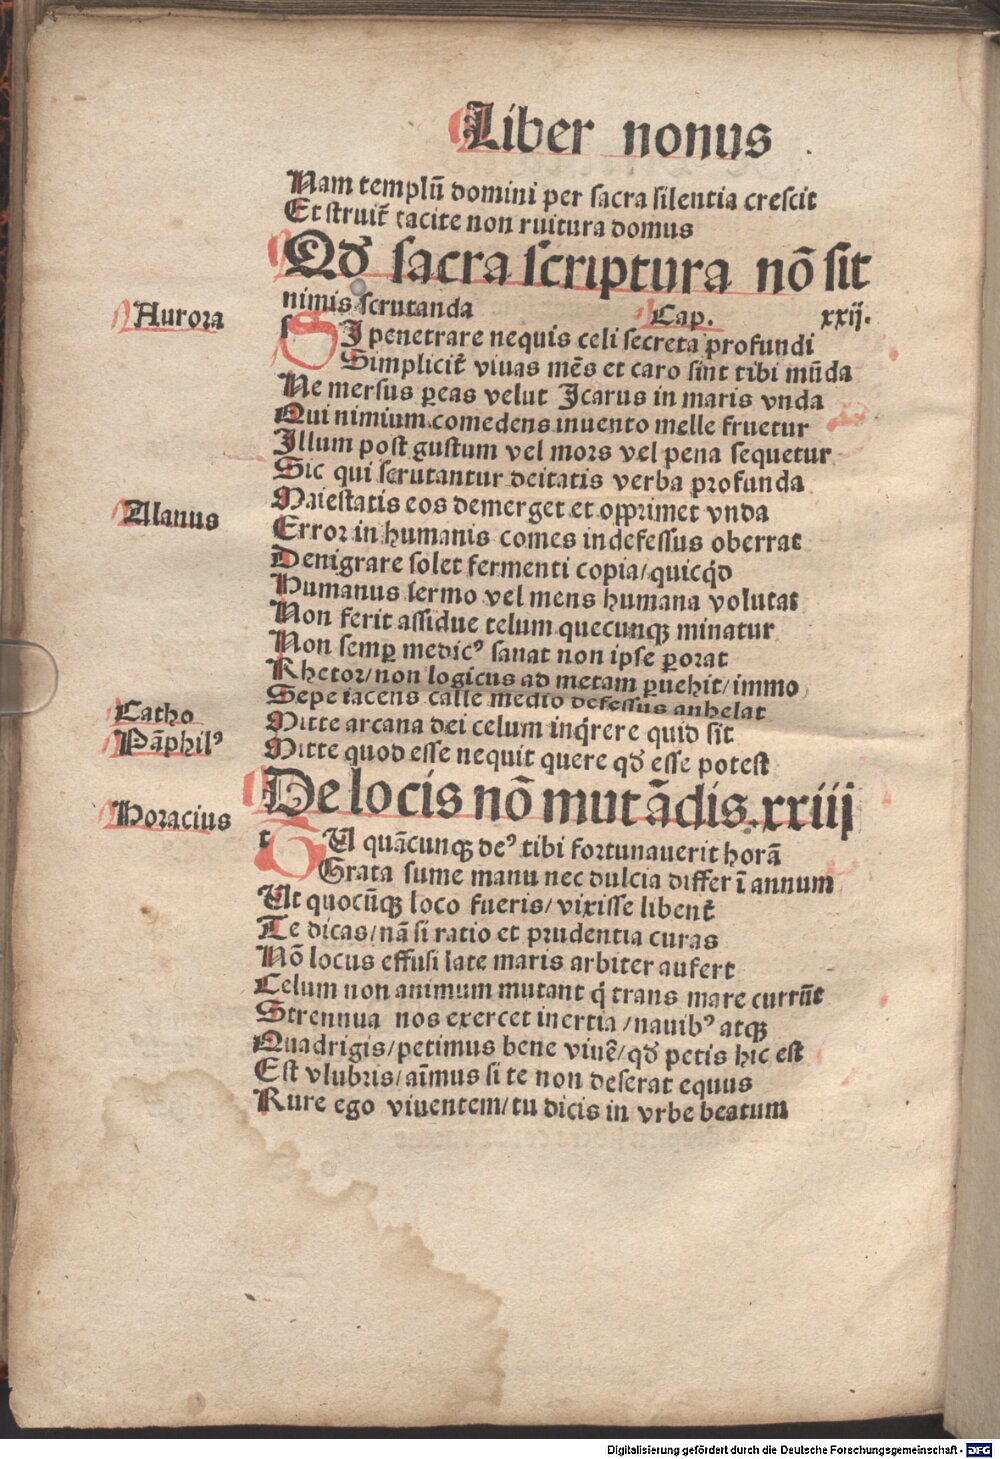 Liber nonus
Nam templū domini per sacra silentia crescit
Et struit̄ tacite non ruitura domus
Qđ sacra scriptura nō sit
nimis scrutanda Cap. xxij.
Aurora
SI penetrare nequis celi secreta profundi
Simplicit̄ viuas mēs et caro sint tibi mūda
Ne mersus ꝑeas velut Icarus in maris vnda
Qui nimium comedens inuento melle fruetur
Illum post gustum vel mors vel pena sequetur
Sic qui scrutantur deitatis verba profunda
Maiestatis eos demerget et opprimet vnda
Alanus
Error in humanis comes indefessus oberrat
Denigrare solet fermenti copia/quicq̇d
Humanus sermo vel mens humana volutat
Non ferit assidue telum quecunqꝫ minatur
Non semꝑ medicꝰ sanat non ipse ꝑorat
Rhetor/non logicus ad metam ꝑuehit/immo
Sepe iacens calle medio defessus anhelat
Catho
Mitte arcana dei celum inq̇rere quid sit
Pāphilꝰ
Mitte quod esse nequit quere qđ esse potest
De locis nō mutādis.xxiij
Horacius
t TU quācunqꝫ deꝰ tibi fortunauerit horā
Grata sume manu nec dulcia differ ī annum
Ut quocūqꝫ loco fueris/vixisse libent̄
Te dicas/nā si ratio et prudentia curas
Nō locus effusi late maris arbiter aufert
Celum non animum mutant q̇ trans mare currūt
Strennua nos exercet inertia/nauibꝰ atqꝫ
Quadrigis/petimus bene viuē/qđ petis hic est
Est vlubris/aīmus si te non deserat equus
Rure ego viuentem/tu dicis in vrbe beatum
Digitalisierung gefördert durch die Deutsche Forschungsgemeinschaft - DFG